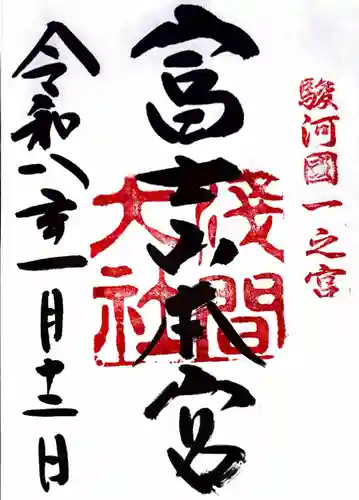 駿河國一之宮
富士山本宮
浅間大社
令和八年一月十二日